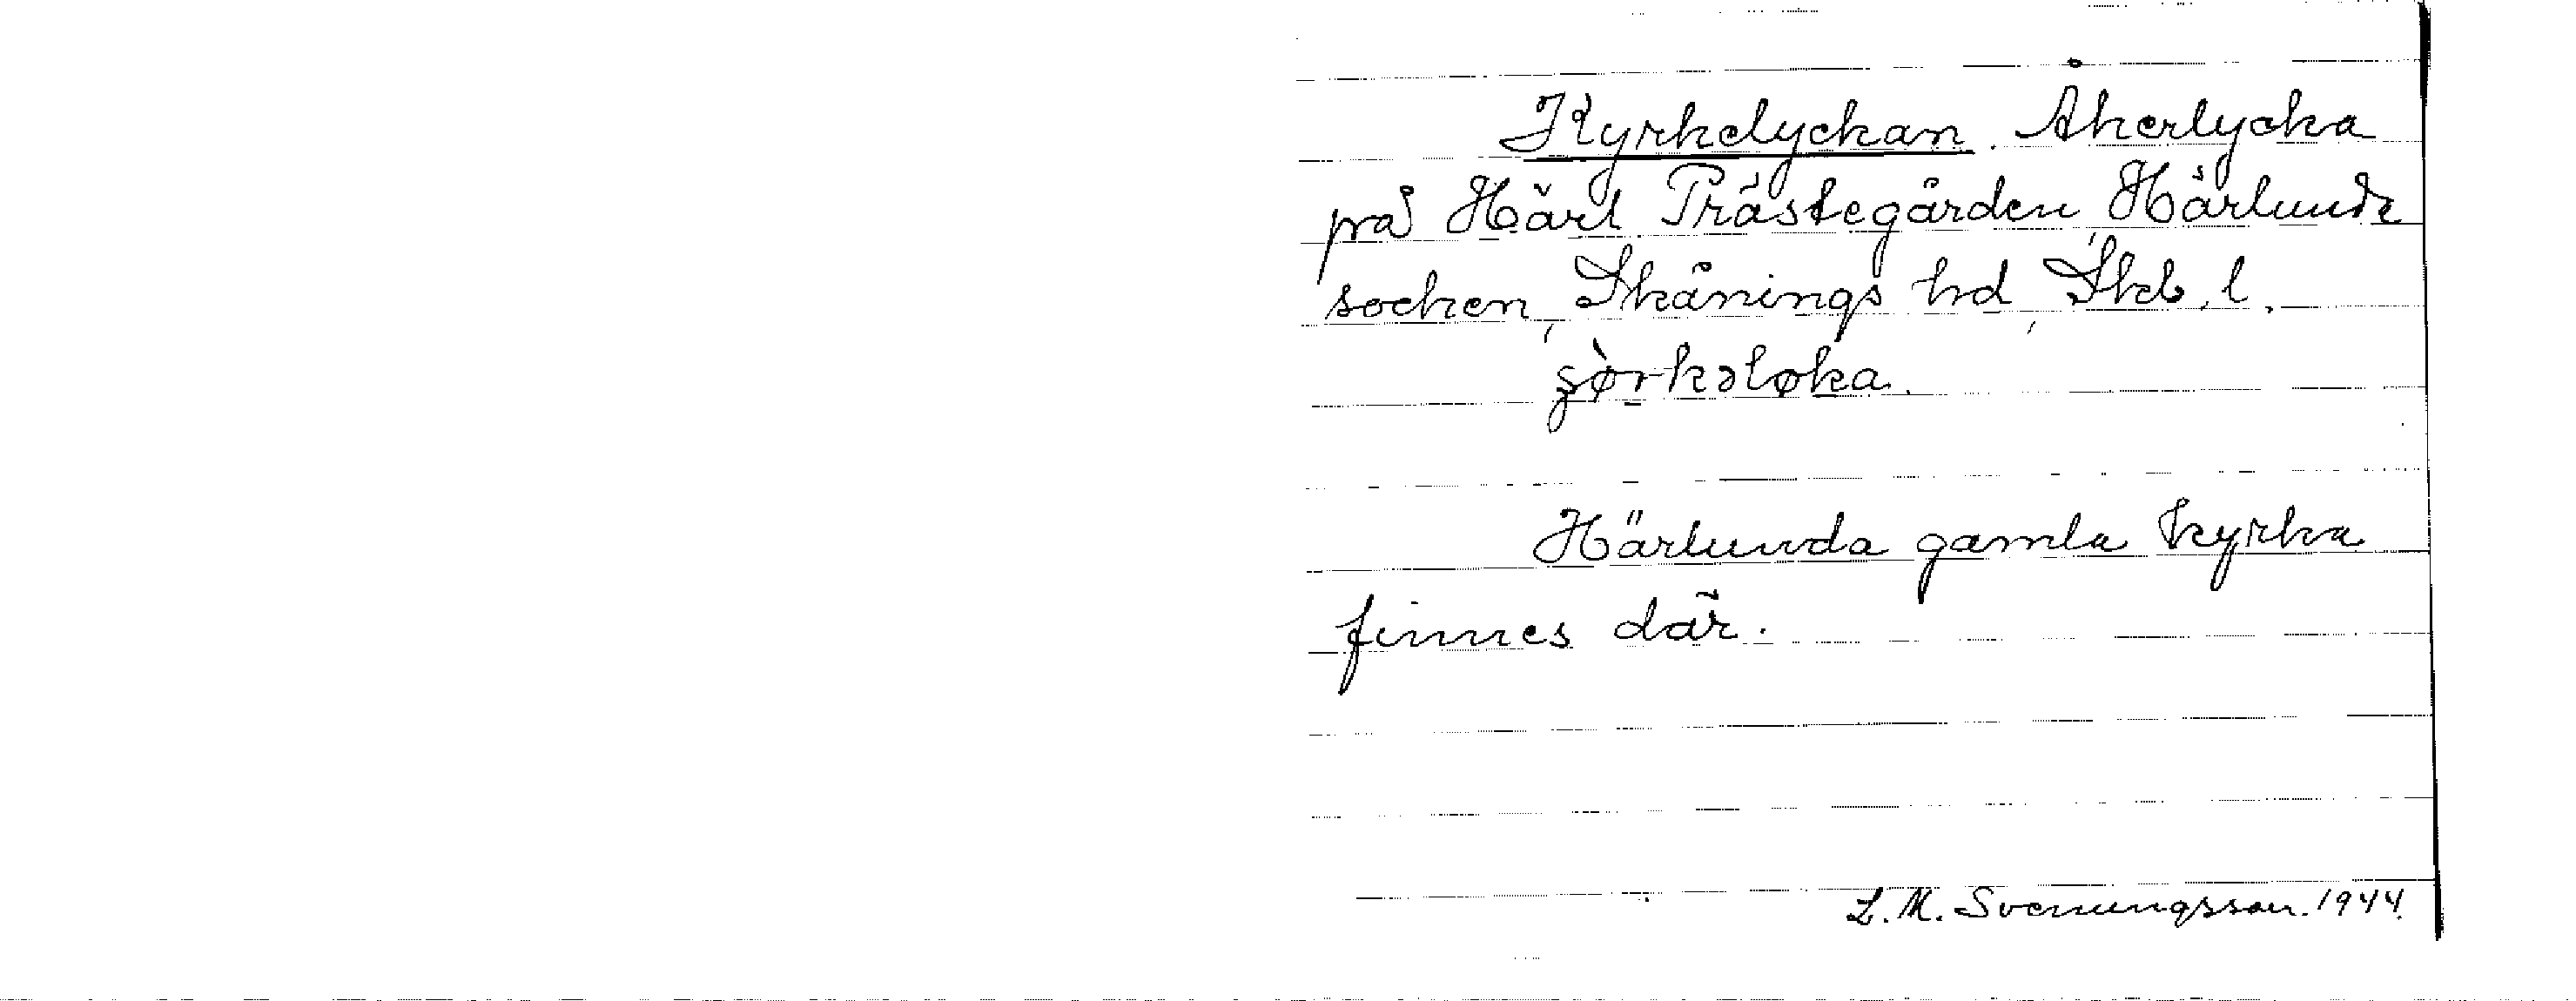 Kyrkelyckan. Åkerlycka
på Härl. Prästegården, Härlunda
socken, Skånings hd, Skb. l.
ʂòrkəløka.
Härlunda gamla kyrka
finnes där.
L. M. Svenungsson. 1944.